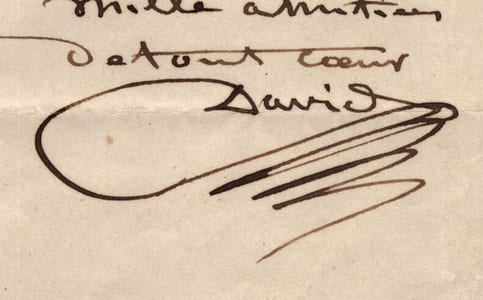 Mille amitiés
de tout cœur
David